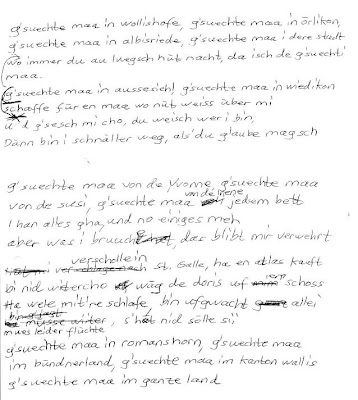 g'suechte maa in wollishofe, g'suechte maa in örlikon,
g'suechte maa in albisriede, g'suechte maa i dere stadt
wo immer du au luegsch hüt nacht, da isch de g'suechti
maa.
g'suechte maa in aussersiehl g'suechte maa in wiedikon
schaffe für en maa, wo nüt weiss über mi
u d g'sesch mi cho, du weisch wer i bin,
Dänn bin i schnäller weg, als du glaube magsch
g'suechte maa von de Yvonne, g'suechte maa
von de irene
von de susi, g'suechte maa jedem bett
I han alles gha, und no einiges meh
aber was i bruuch, das blibt mir verwehrt
verschollein
i st. Galle, ha en atlas kauft
bi nid witercho wäg de doris uf schoss
Ha wele mit're schlafe, bin ufgwacht allei
s'hät nid sölle sii
mues leider flüchte
g'suechte maa in romanshorn, g'suechte maa
im bündnerland, g'suechte maa im kanton wallis
g'suechte maa im ganze land